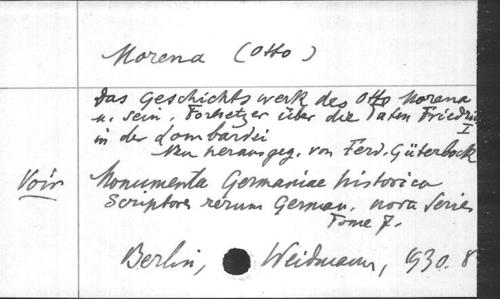 Morena (Otto)
Das Geschichtswerk des Otto Morena
u. sein. Fortsetzer über die Taten Friedrichs
I
in der Lombardei
Neu herausgeg. von Ferd. Güterbock
Voir Monumenta Germaniae historica
Scriptores rerum German. nova Series
Tome 7.
Berlin, Weidmann, 1930. 8